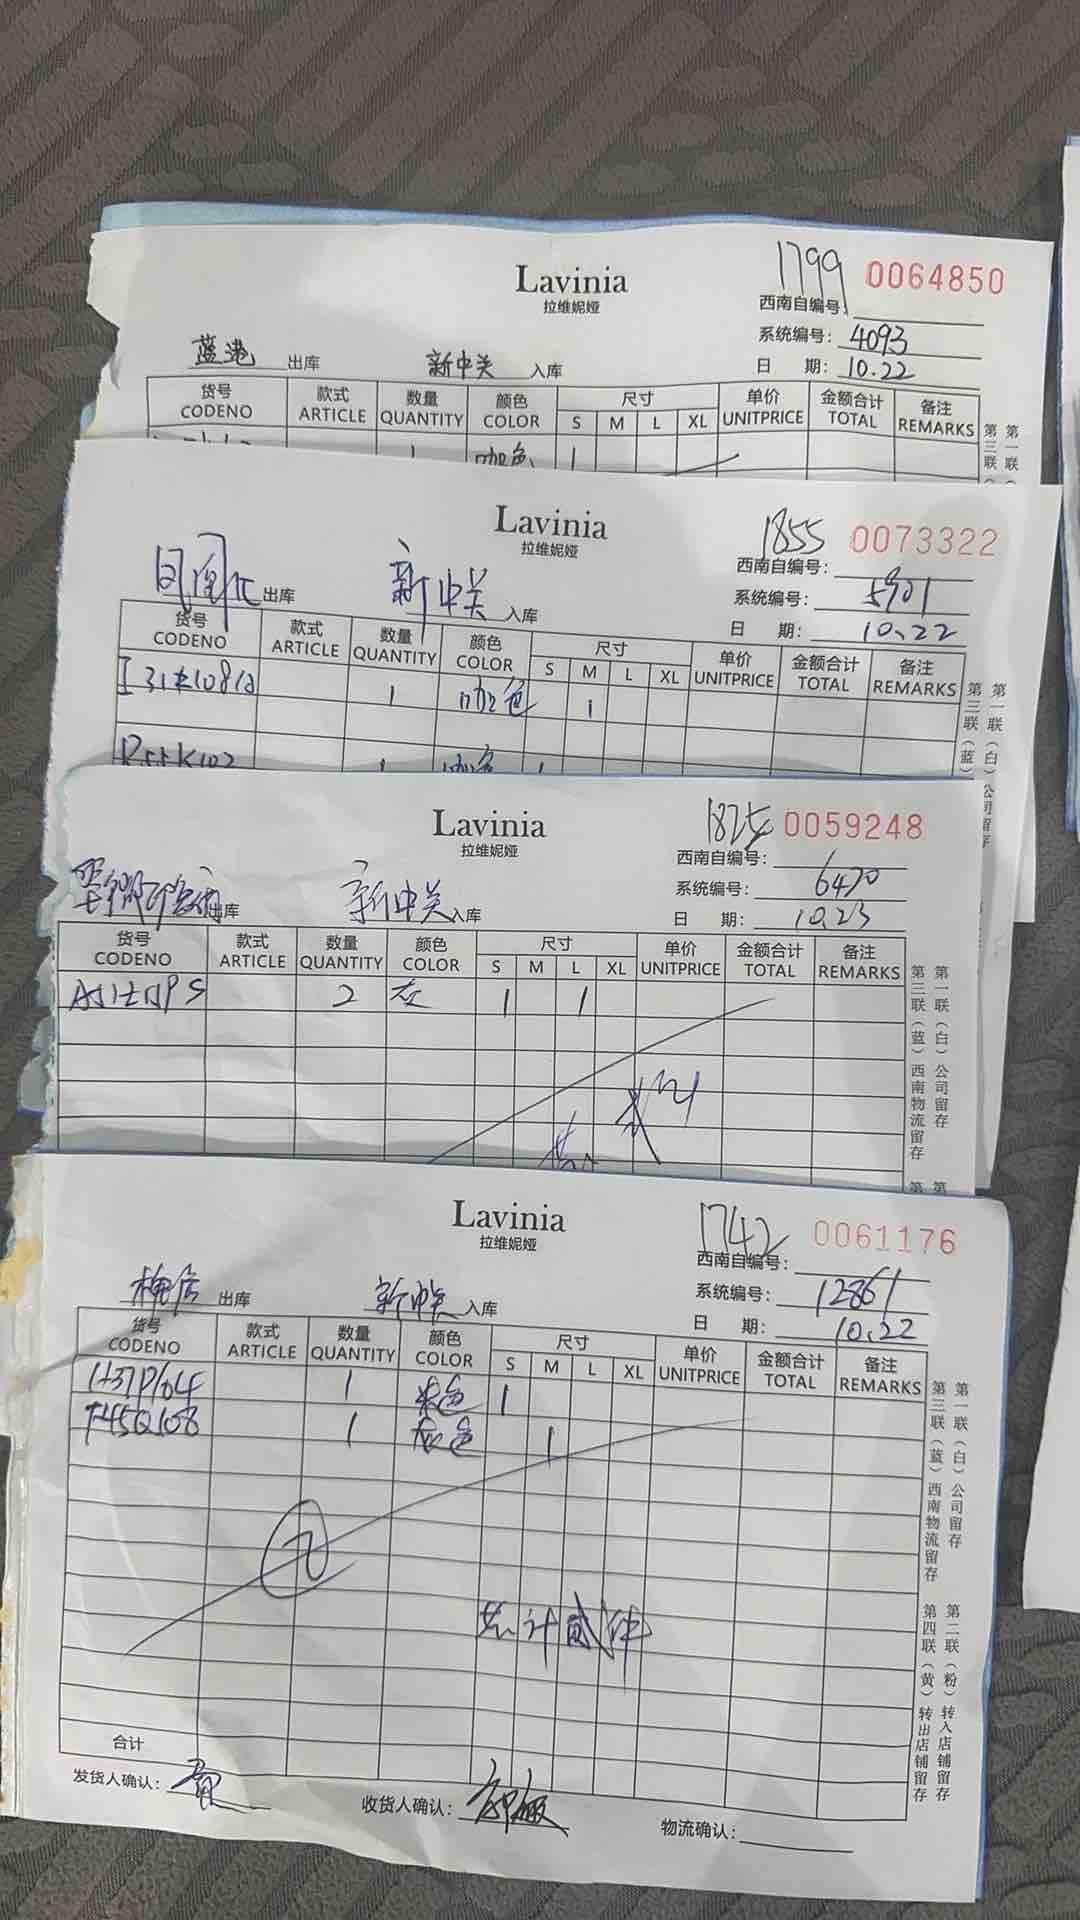 Lavinia
拉维妮娅
1799 0064850
西南自编号:
系统编号: 4093
日 期: 10.22
蓝港 出库 新中关 入库
货号 款式 数量 颜色 尺寸 单价 金额合计 备注
CODENO ARTICLE QUANTITY COLOR S M L XL UNITPRICE TOTAL REMARKS
1 咖色 1
第三联
第一联
Lavinia
拉维妮娅
1855 0073322
西南自编号:
系统编号: 5901
日 期: 10.22
出库 新中关 入库
货号 款式 数量 颜色 尺寸 单价 金额合计 备注
CODENO ARTICLE QUANTITY COLOR S M L XL UNITPRICE TOTAL REMARKS
1 咖色 1
R55K102 1 咖色 1
第三联(蓝)
第一联(白)公司留存
Lavinia
拉维妮娅
0059248
西南自编号:
系统编号: 6470
日 期: 10.23
出库 新中关 入库
货号 款式 数量 颜色 尺寸 单价 金额合计 备注
CODENO ARTICLE QUANTITY COLOR S M L XL UNITPRICE TOTAL REMARKS
2 灰 1 1
第三联(蓝)西南物流留存
第一联(白)公司留存
第 第
Lavinia
拉维妮娅
1742 0061176
西南自编号:
系统编号: 12861
日 期: 10.22
出库 新中关 入库
货号 款式 数量 颜色 尺寸 单价 金额合计 备注
CODENO ARTICLE QUANTITY COLOR S M L XL UNITPRICE TOTAL REMARKS
H37P104 1 米色 1
T45Q108 1 灰色 1
共计贰件
合计
发货人确认:
收货人确认:
物流确认:
第三联(蓝)西南物流留存
第一联(白)公司留存
第四联(黄)转出店铺留存
第二联(粉)转入店铺留存